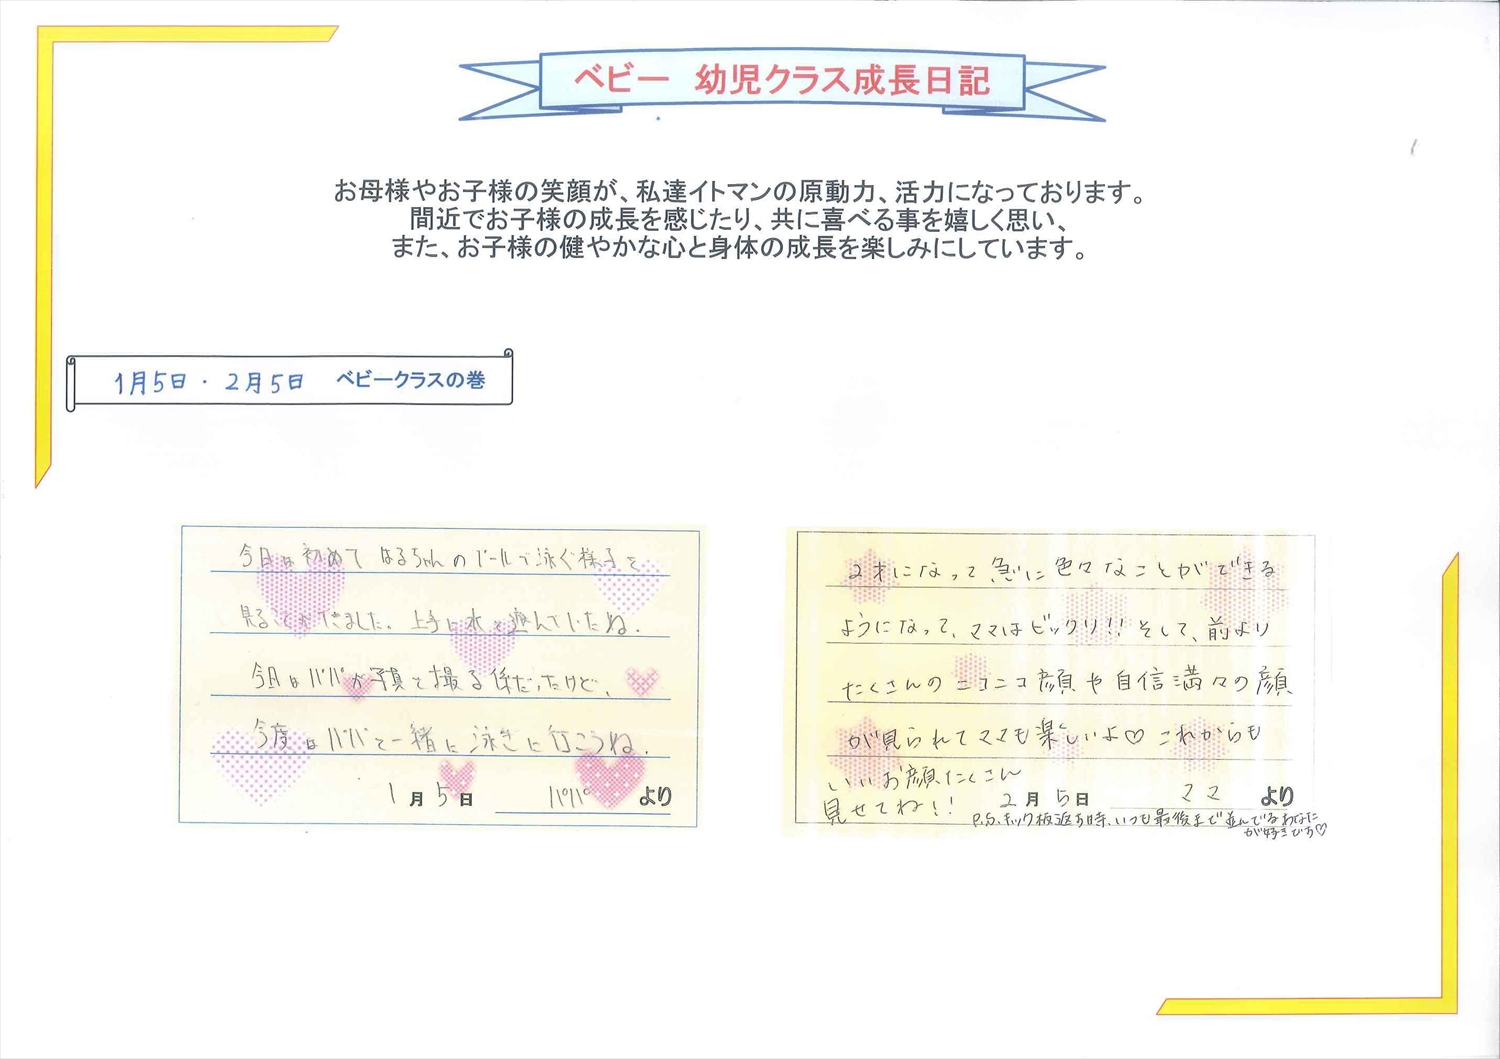 ベビー 幼児クラス成長日記
お母様やお子様の笑顔が、私達イトマンの原動力、活力になっております。
間近でお子様の成長を感じたり、共に喜べる事を嬉しく思い、
また、お子様の健やかな心と身体の成長を楽しみにしています。
1月5日・2月5日 ベビークラスの巻
今日は初めてはるちゃんのプールで泳ぐ様子を
見ることができました。上手に水で遊んでいたね。
今日はパパが写真を撮る係だったけど、
今度はパパと一緒に泳ぎに行こうね。
1月5日 パパより
2才になって急に色々なことができる
ようになって、ママはビックリ!!そして、前より
たくさんのニコニコ顔や自信満々の顔
が見られてママも楽しいよ♡これからも
いいお顔たくさん
見せてね!!
2月5日 ママより
P.S.キック板返す時、いつも最後まで並んでるあなた
が好きです♡